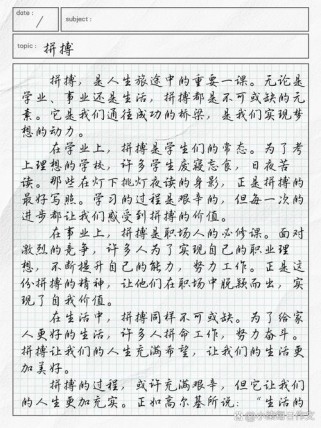 date:
/
subject:
topic: 拼搏
拼搏，是人生旅途中的重要一课。无论是
学业、事业还是生活，拼搏都是不可或缺的元
素。它是我们通往成功的桥梁，是我们实现梦
想的动力。
在学业上，拼搏是学生们的常态。为了考
上理想的学校，许多学生废寝忘食，日夜苦
读。那些在灯下挑灯夜读的身影，正是拼搏的
最好写照。学习的过程是艰辛的，但每一次的
进步都让我们感受到拼搏的价值。
在事业上，拼搏是职场人的必修课。面对
激烈的竞争，许多人为了实现自己的职业理
想，不断提升自己的能力，努力工作。正是这
份拼搏的精神，让他们在职场中脱颖而出，实
现了自我价值。
在生活中，拼搏同样不可或缺。为了给家
人更好的生活，许多人拼命工作，努力奋斗。
拼搏让我们的人生充满希望，让我们的生活更
加美好。
拼搏的过程，或许充满艰辛，但它让我们
的人生更加充实。正如高尔基所说：“生活的